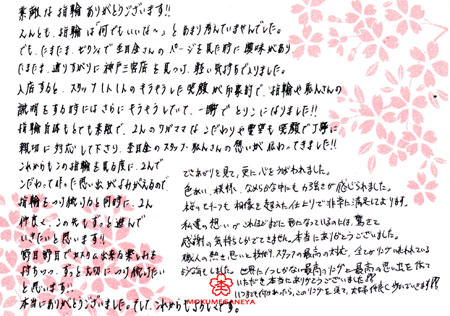 素敵な指輪ありがとうございます!!
2人とも、指輪は「何でもいいな~」とあまり考えていませんでした。
でも、たまたま、ゼクシィで杢目金さんのページを見た時に興味があり
たまたま、通りすがりに神戸三宮店を見つけ、軽い気持ちで入りました。
入店すると、スタッフ1人1人のキラキラした笑顔が印象的で、指輪や職人さんの
説明をする時にはさらにキラキラしていて、一瞬でとりこになりました!!
指輪自体もとても素敵で、2人のワガママなこだわりや要望も笑顔で丁寧に
親切に対応して下さり、杢目金のスタッフ・職人さんの思いが伝わってきました!!
これからもこの指輪を見る度に、2人で
こだわって作った思い出がよみがえるので、
指輪をつけ続けると同時に、2人
仲良く、この先もずっと進んで
いきたいと思います!!
節目節目でカスタム出来る楽しみも
持ちつつ、ずっと大切につけ続けたい
と思います!!
本当にありがとうございました。そして、これからもよろしくです。
できあがりを見て、更に心をうばわれました。
色あい、模様、なめらかな中にも力強さが感じられました。
桜のモチーフも相像を超えた仕上りで非常に満足しております。
私達の想いがこれほどまでに形となっているのには、驚きと
感謝の気持ちしかでてきません。本当にありがとうございました。
職人の熱き思いと技術、スタッフの最高の対応、全てがリングに
世界に1つしかない最高のリングと最高の思い出を
いただき本当にありがとうございました!!
いつまでも付けあいながら、このリングを見て、夫婦仲良く歩んでいきます!!!
MOKUMEGANEYA